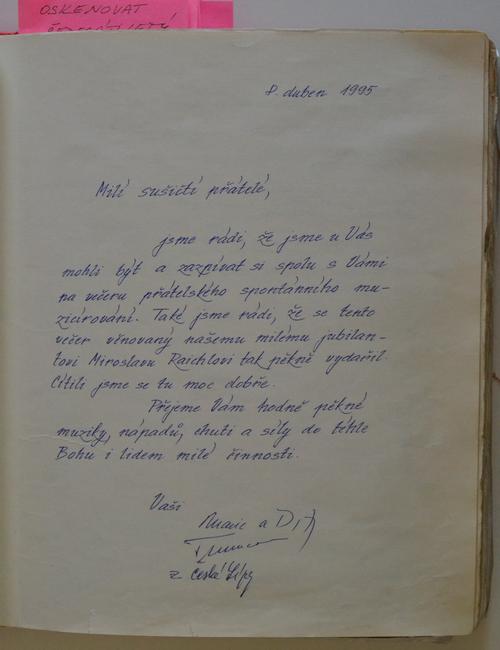 OSKENOVAT
8. duben 1995
Milí sušičtí přátelé,
jsme rádi, že jsme u Vás
mohli být a zazpívat si spolu s Vámi
na večeru přátelského spontánního mu-
zicírování. Také jsme rádi, že se tento
večer věnovaný našemu milému jubilan-
tovi Miroslavu Raichlovi tak pěkně vydařil.
Cítili jsme se tu moc dobře.
Přejeme Vám hodně pěkné
muziky, nápadů, chuti a síly do téhle
Bohu i lidem milé činnosti.
Vaši
a
z České Lípy